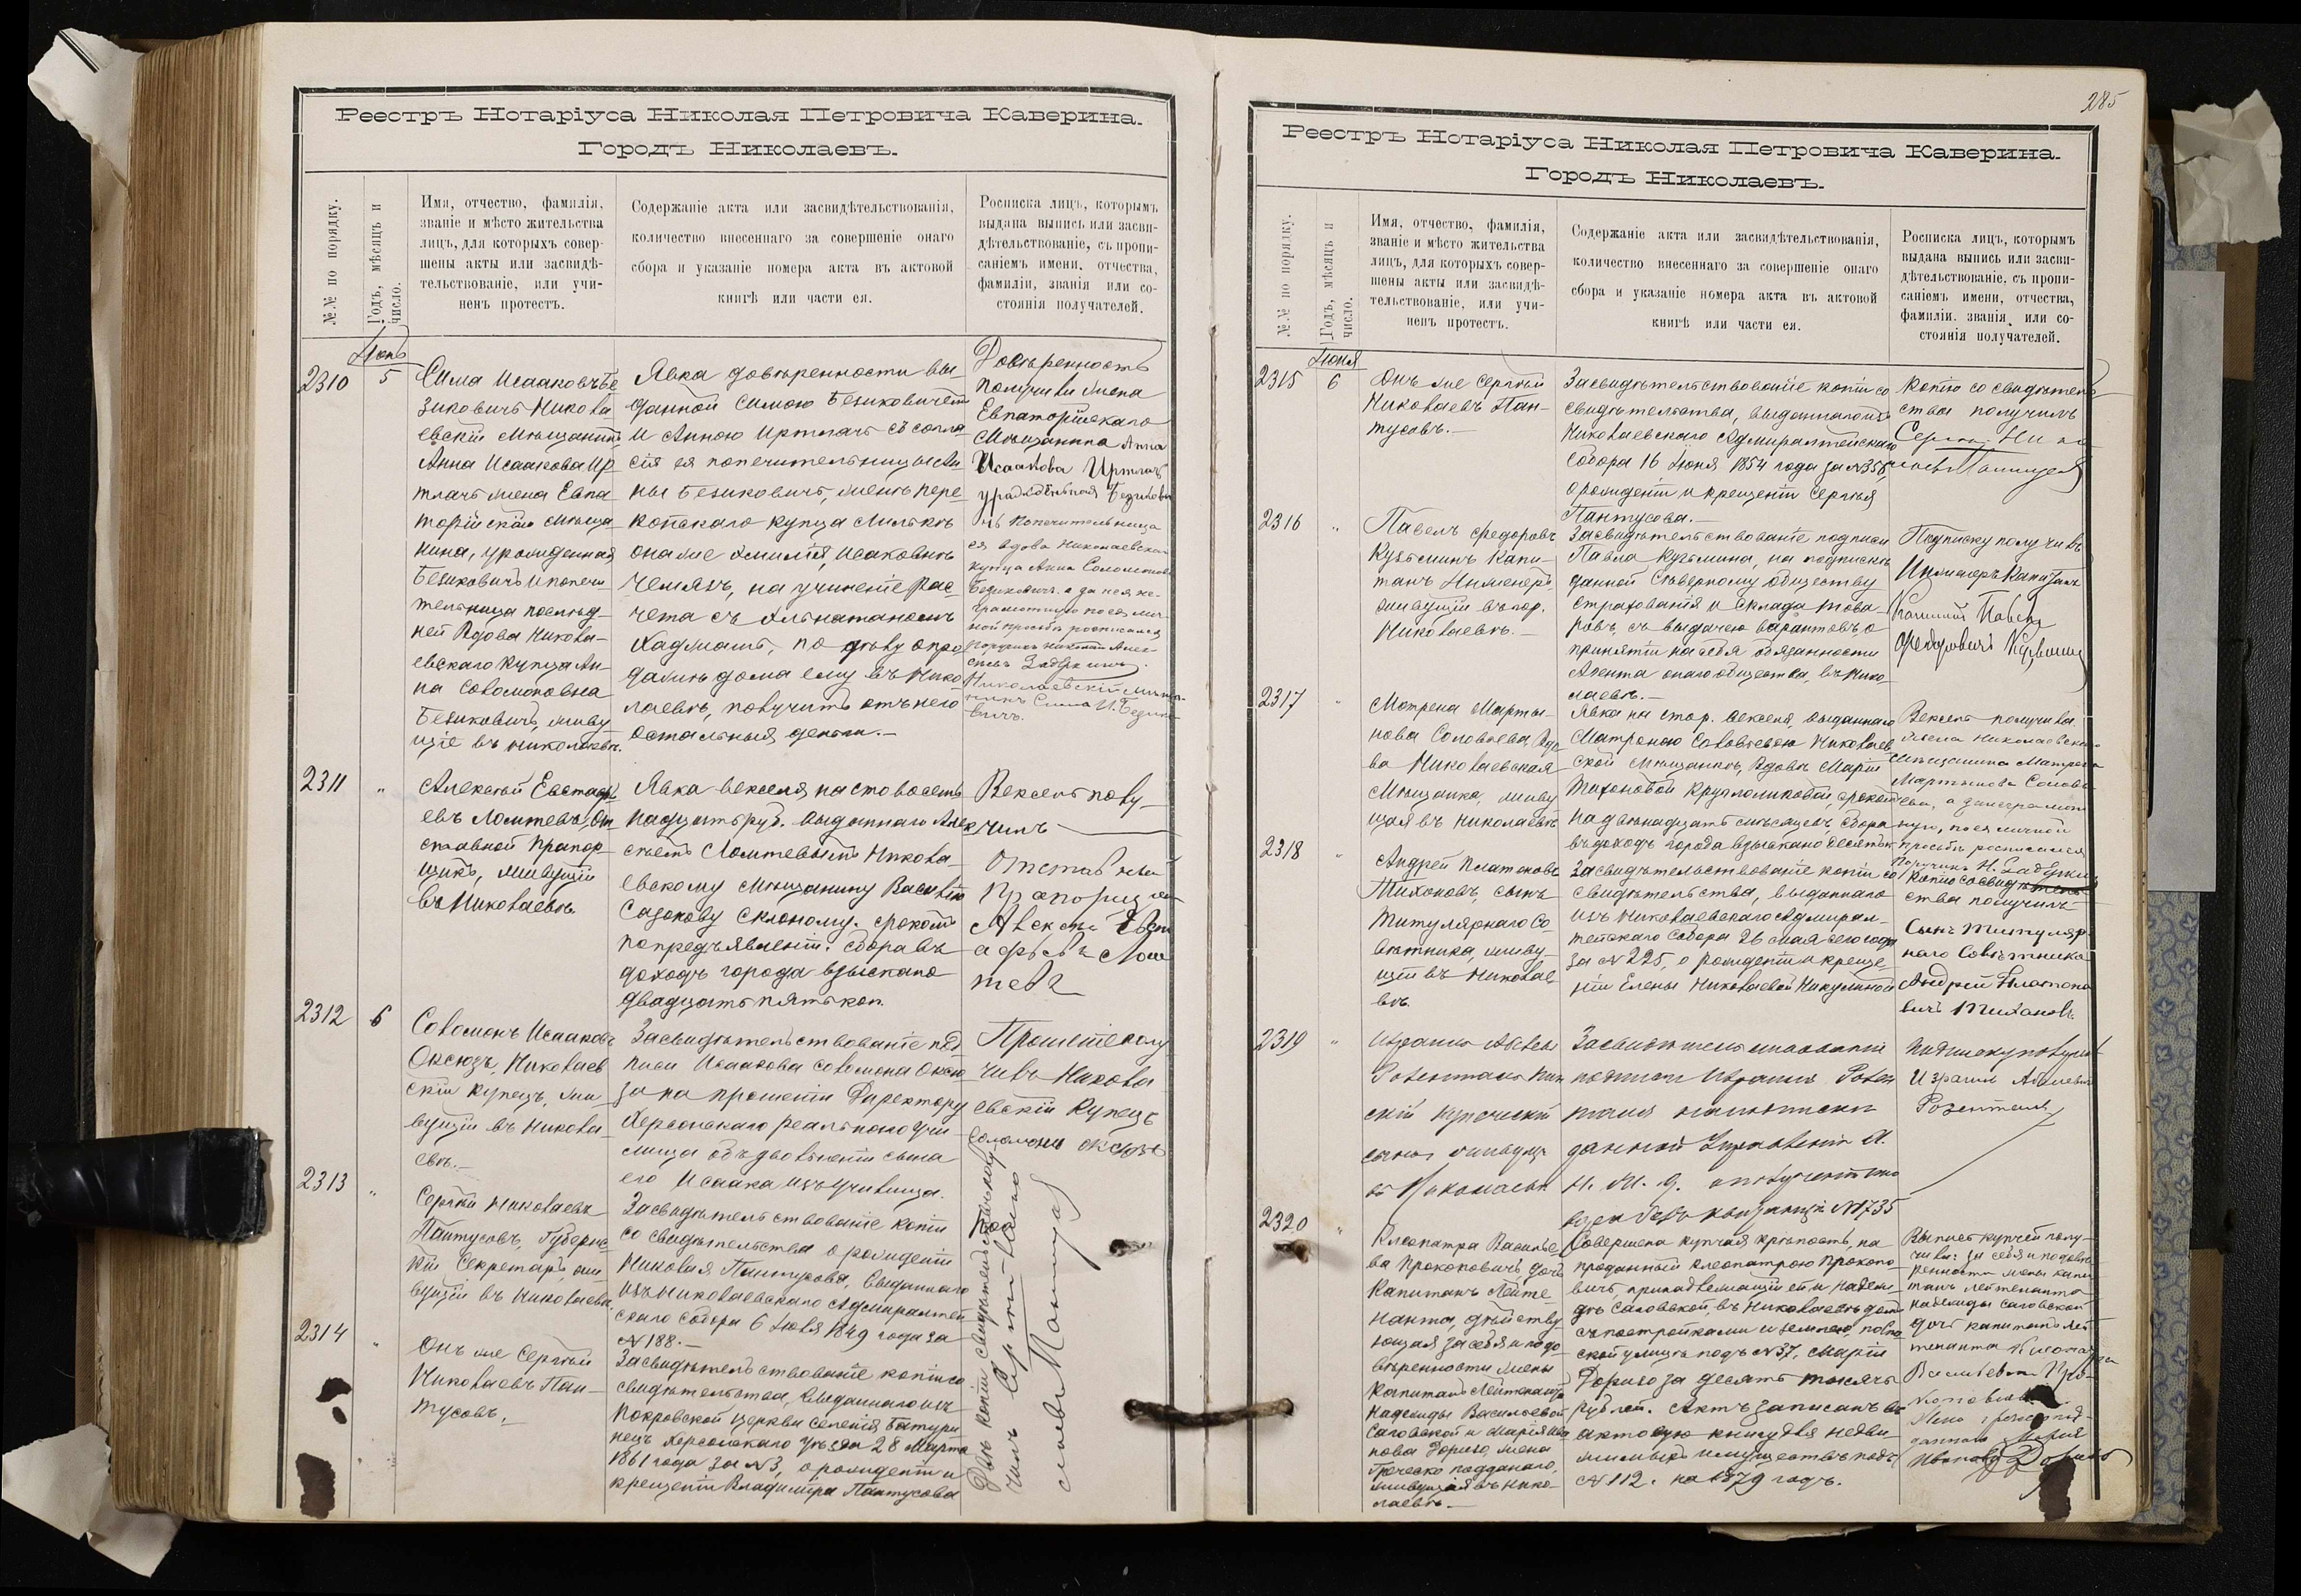 Реестръ Нотаріуса Николая Петровича Каверина.
Городъ Николаевъ.
№№ по порядку.
Годъ, мѣсяцъ и число.
Имя, отчество, фамилія,
званіе и мѣсто жительства
лицъ, для которыхъ совер-
шены акты или засвидѣ-
тельствованіе, или учи-
ненъ протестъ.
Содержаніе акта или засвидѣтельствованія,
количество внесеннаго за совершеніе онаго
сбора и указаніе номера акта въ актовой
книгѣ или части ея.
Росписка лицъ, которымъ
выдана выпись или засви-
дѣтельствованіе, съ пропи-
саніемъ имени, отчества,
фамиліи, званія или со-
стоянія получателей.
Іюнь
2310
5
Сима Исааковъ Бе
зиковичъ Никола
евскій Мѣщанинъ
Анна Исаакова Ир
тлачъ жена Евпа
торійскаго мѣща
нина, урожденная
Безиковичъ и попечи
тельница послѣд
ней Вдова Никола-
евскаго купца Ан-
на Соломоновна
Безиковичъ, живу
щіе въ Николаевѣ.
Явка довѣренности вы
данной Симою Безиковичемъ
и Анною Иртлачъ съ согла
сія ея попечительницы Ан
ны Безиковичъ, женѣ пере
копскаго купца
она же Эмилія, Исааковнѣ
на учиненіе рас
чета съ
Хаджашъ, по дѣлу о про
дажѣ дома ему въ Нико
лаевѣ, получить отъ него
остальныя деньги.-
Довѣренность
получили жена
Евпаторійскаго
Мѣщанина Анна
Исаакова Иртлачъ
урожденная Безикови
чъ попечительница
ея вдова Николаевскаго
купца Анна Соломонова
Безиковичъ, а за нея не-
грамотную по ея лич-
ной просьбѣ росписался
Николаевскій мѣща-
нинъ Сима И. Безико-
вичъ.
2311
"
Алексѣй Евстафь
евъ Ломтевъ, От
ставной Прапор
щикъ, живущій
въ Николаевѣ.
Явка векселя на сто восемь
надцать руб. выданнаго Алек
сѣемъ Ломтевымъ Никола
евскому мѣщанину Василію
Сазонову Склоному. срокомъ
по предъявленіи. Сбора въ
доходъ города взыскано
двадцать пять коп.
Вексель полу
чилъ
Отставный
Прапорщикъ
Алексѣй Евст
афьевъ Лом
тевъ
2312
6
Соломонъ Исааковъ
Оксюзъ, Николаев
скій купецъ, жи
вущій въ Никола
евѣ.-
Засвидѣтельствованіе под
писи Исаакова Соломона Оксю
за на прошеніи Директору
Херсонскаго реальнаго учи
лища объ увольненіи сына
его Исаака изъ училища.
Прошеніе полу
чивъ Никола
евскій Купецъ
Соломонъ Оксюзъ
2313
"
Сергѣй Николаевъ
Пантусовъ, Губернс
кій Секретарь, жи
вущій въ Николаевѣ.
Засвидѣтельствованіе копіи
со свидѣтельства о рожденіи
Николая Пантусова, выданнаго
изъ Николаевскаго Адмиралтей
скаго Собора 6 Іюля 1849 года за
№ 188.-
2314
"
Онъ же Сергѣй
Николаевъ Пан-
тусовъ.
Засвидѣтельствованіе копіи со
свидѣтельства, выданнаго изъ
Покровской церкви селенія Батури
нецъ Херсонскаго уѣзда 28 Марта
1861 года за № 3, о рожденіи и
крещеніи Владиміра Пантусова
Двѣ копіи свидѣтельствъ полу-
чилъ Сергѣй Нико-
лаевъ Пантусов
285
Реестръ Нотаріуса Николая Петровича Каверина.
Городъ Николаевъ.
№№ по порядку.
Годъ, мѣсяцъ и число.
Имя, отчество, фамилія,
званіе и мѣсто жительства
лицъ, для которыхъ совер-
шены акты или засвидѣ-
тельствованіе, или учи-
ненъ протестъ.
Содержаніе акта или засвидѣтельствованія,
количество внесеннаго за совершеніе онаго
сбора и указаніе номера акта въ актовой
книгѣ или части ея.
Росписка лицъ, которымъ
выдана выпись или засви-
дѣтельствованіе, съ пропи-
саніемъ имени, отчества,
фамиліи. званія или со-
стоянія получателей.
Іюня
2315
6
Онъ же Сергѣй
Николаевъ Пан-
тусовъ.-
Засвидѣтельствованіе копіи со
свидѣтельства, выданнаго изъ
Николаевскаго Адмиралтейскаго
Собора 16 Іюня 1854 года за № 356,
о рожденіи и крещеніи Сергѣя
Пантусова.-
Копію со свидѣтель
ства получилъ
Сергѣй Нико
лаевъ Пантусов
2316
"
Павелъ Федоровъ
Кузьминъ Капи-
танъ Инженеръ
живущій въ гор.
Николаевѣ.-
Засвидѣтельствованіе подписи
Павла Кузьмина, на подпискѣ
данной Сѣверному обществу
страхованія и склада това
ровъ, съ выдачею варантовъ, о
принятіи на себя обязанности
Агента онаго общества, въ Нико
лаевѣ.-
Подписку получилъ
Инженеръ Капитанъ
Павелъ
Федоровичъ Кузьминъ
2317
"
Матрена Марты-
нова Соловьева, Вдо
ва Николаевская
Мѣщанка, живу
щая въ Николаевѣ
Явка на стор. векселя выданнаго
Матреною Соловьевою Николаев
ской мѣщанкѣ, Вдовѣ Маріи
Тихоновой Кругломиковой, срокомъ
на двѣнадцать мѣсяцевъ, сбора
въ доходъ города взыскано десять к.
Вексель получила
жена Николаевскаго
мѣщанина Матрена
Мартынова Соловь
ева, а за неграмот
ную, по ея личной
просьбѣ росписался
Поручикъ Н.
2318
"
Андрей Платоновъ
Тихоновъ, сынъ
Титулярнаго Со
вѣтника, живу
щій въ Николае
вѣ.
Засвидѣтельствованіе копіи со
свидѣтельства, выданнаго
изъ Николаевскаго Адмирал-
тейскаго Собора 26 мая сего года
за № 225, о рожденіи и креще
ніи Елены Николаевой Никулиной
Копію со свидѣтель
ства получилъ
Сынъ Титуляр
наго Совѣтника
Андрей Платоно
вичъ Тихоновъ
2319
"
Израиль Абелев
Розенталь
скій купеческій
сынъ живущій
въ Николаевѣ
Засвидѣтельствованіе
подписи Израиля Розен
таля на подпискѣ
данной Управленію
Н. М. о полученіи
квитанціи № 1735
Подписку получилъ
Израиль Абелевъ
Розенталь
2320
"
Клеопатра Василье
ва Прокоповичъ, дочь
Капитанъ Лейте-
нанта, дѣйству
ющая за себя и по до
вѣренности жены
Капитанъ Лейтенанта
Надежды Васильевой
Саговской и Марія Ива
нова Дориго, жена
Греческо подданаго,
живущая въ Нико-
лаевѣ.-
Совершена купчая крѣпость, на
проданный Клеопатрою Прокопо
вичъ, принадлежащій ей и Надеж-
дѣ Саговской, въ Николаевѣ домъ
съ постройками и землею,
ской улицѣ подъ № 37, Маріи
Дориго за десять тысячъ
рублей. Актъ записанъ въ
актовую книгу для недви
жимыхъ имуществъ подъ
№ 112. на 1879 годъ.
Выпись купчей полу
чила: за себя и по довѣ
ренности жены капи
танъ лейтенанта
Надежды Саговской
дочь капитанъ лей
тенанта Клеопатра
Васильевна Про-
коповичъ
Жена греческо под-
даннаго Марія
Иванова Дориго